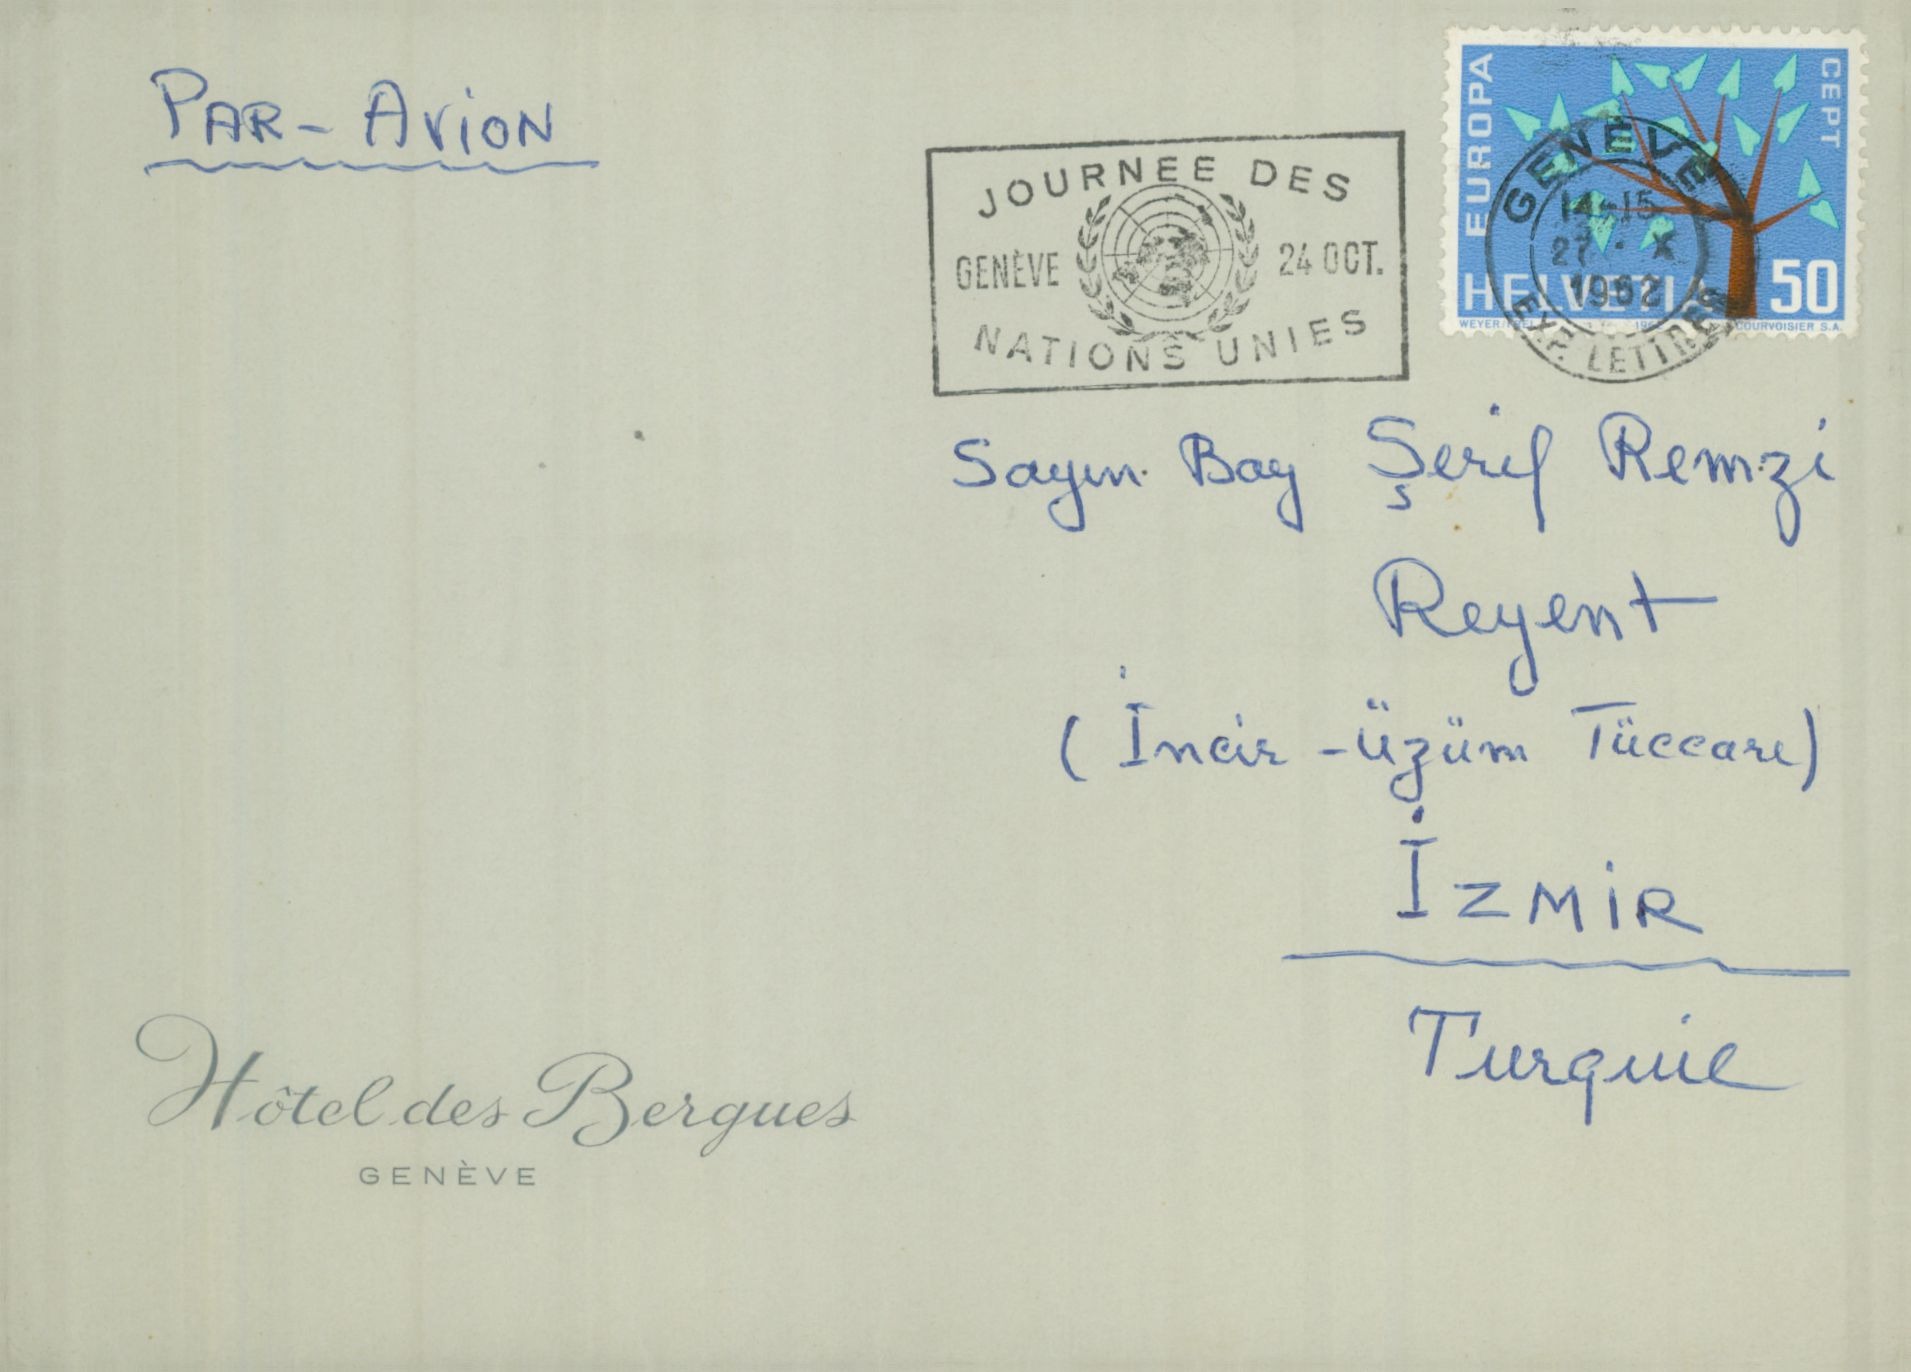 PAR - AVION
JOURNEE DES
GENÈVE 24 OCT.
NATIONS UNIES
EUROPA
CEPT
HELVETIA 50
COURVOISIER S.A.
GENÈVE
14-15
27. X
1962
EXP. LETTRES
Sayın Bay Şerif Remzi
Reyent
(İncir - Üzüm Tüccarı)
İZMİR
Turquie
Hôtel des Bergues
GENÈVE